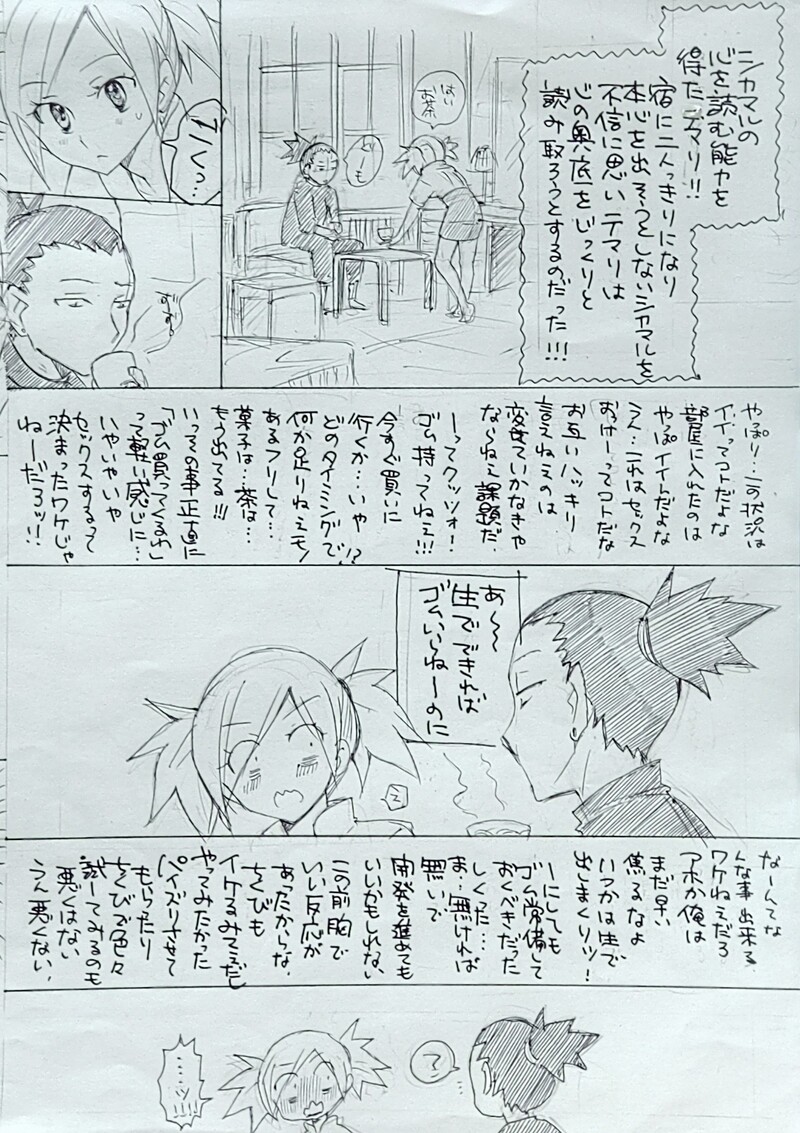 シカマルの
心を読む能力を
得たテマリ!!
宿に二人っきりになり
本心を出そうとしないシカマルを
不信に思いテマリは
心の奥底をじっくりと
読み取ろうとするのだった!!!
はい
お茶
じ〜っ…
ずず〜
やっぱり…この状況は
イイってコトだよな
部屋に入れたのは
やっぱイイトだよな
うん…これはセックス
おっけーってコトだな
お互いハッキリ
言えねえのは
変せていかなきゃ
なんねえ課題だ.
ーってクッツォー!
ゴム持ってねえ!!!
今すぐ買いに
行くか…いや!?
どのタイミングで
何か足りねぇモノ
あるフリして…
菓子は…茶は…
もう出てる!!!
いっその事正直に
「ゴム買ってくるわ」
って軽い感じに…
いやいやいや
セックスするって
決まったワケじゃ
ねーだろッ!!
あ〜〜
生でできれば
ゴムいらねーのに
え
なーんてな
んな事出来る
ワケねえだろ
アホか俺は
まだ早い
焦るなよ
いつかは生で
出しまくりッ!
ーにしても
ゴム常備して
おくべきだった
しくった…
ま…無ければ
無いで
開発を進めても
いいかもしれない
この前胸で
いい反応が
あったからな.
ちくびも
イケるみてぇだし
やってみたかった
パイズリさせて
もらったり
ちくびで色々
試してみるのも
悪くはない
うん悪くない.
?
……ッ!!!